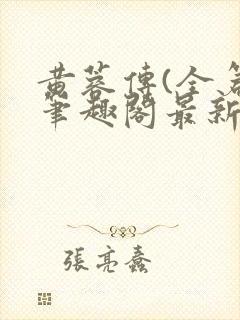 黄蓉傳(全
筆趣閣最新
張亮蠢